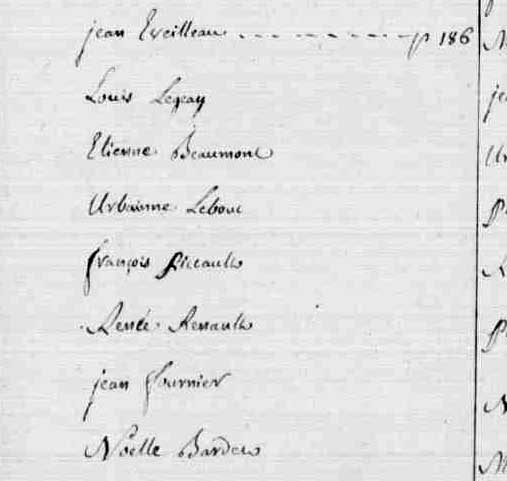 jean Eveilleau - - - - - - - - - p 186
Louis Legeay
Etienne Beaumont
Urbainne Lebouc
françois Picault
Renée Renault
jean fournier
Noelle Bardou